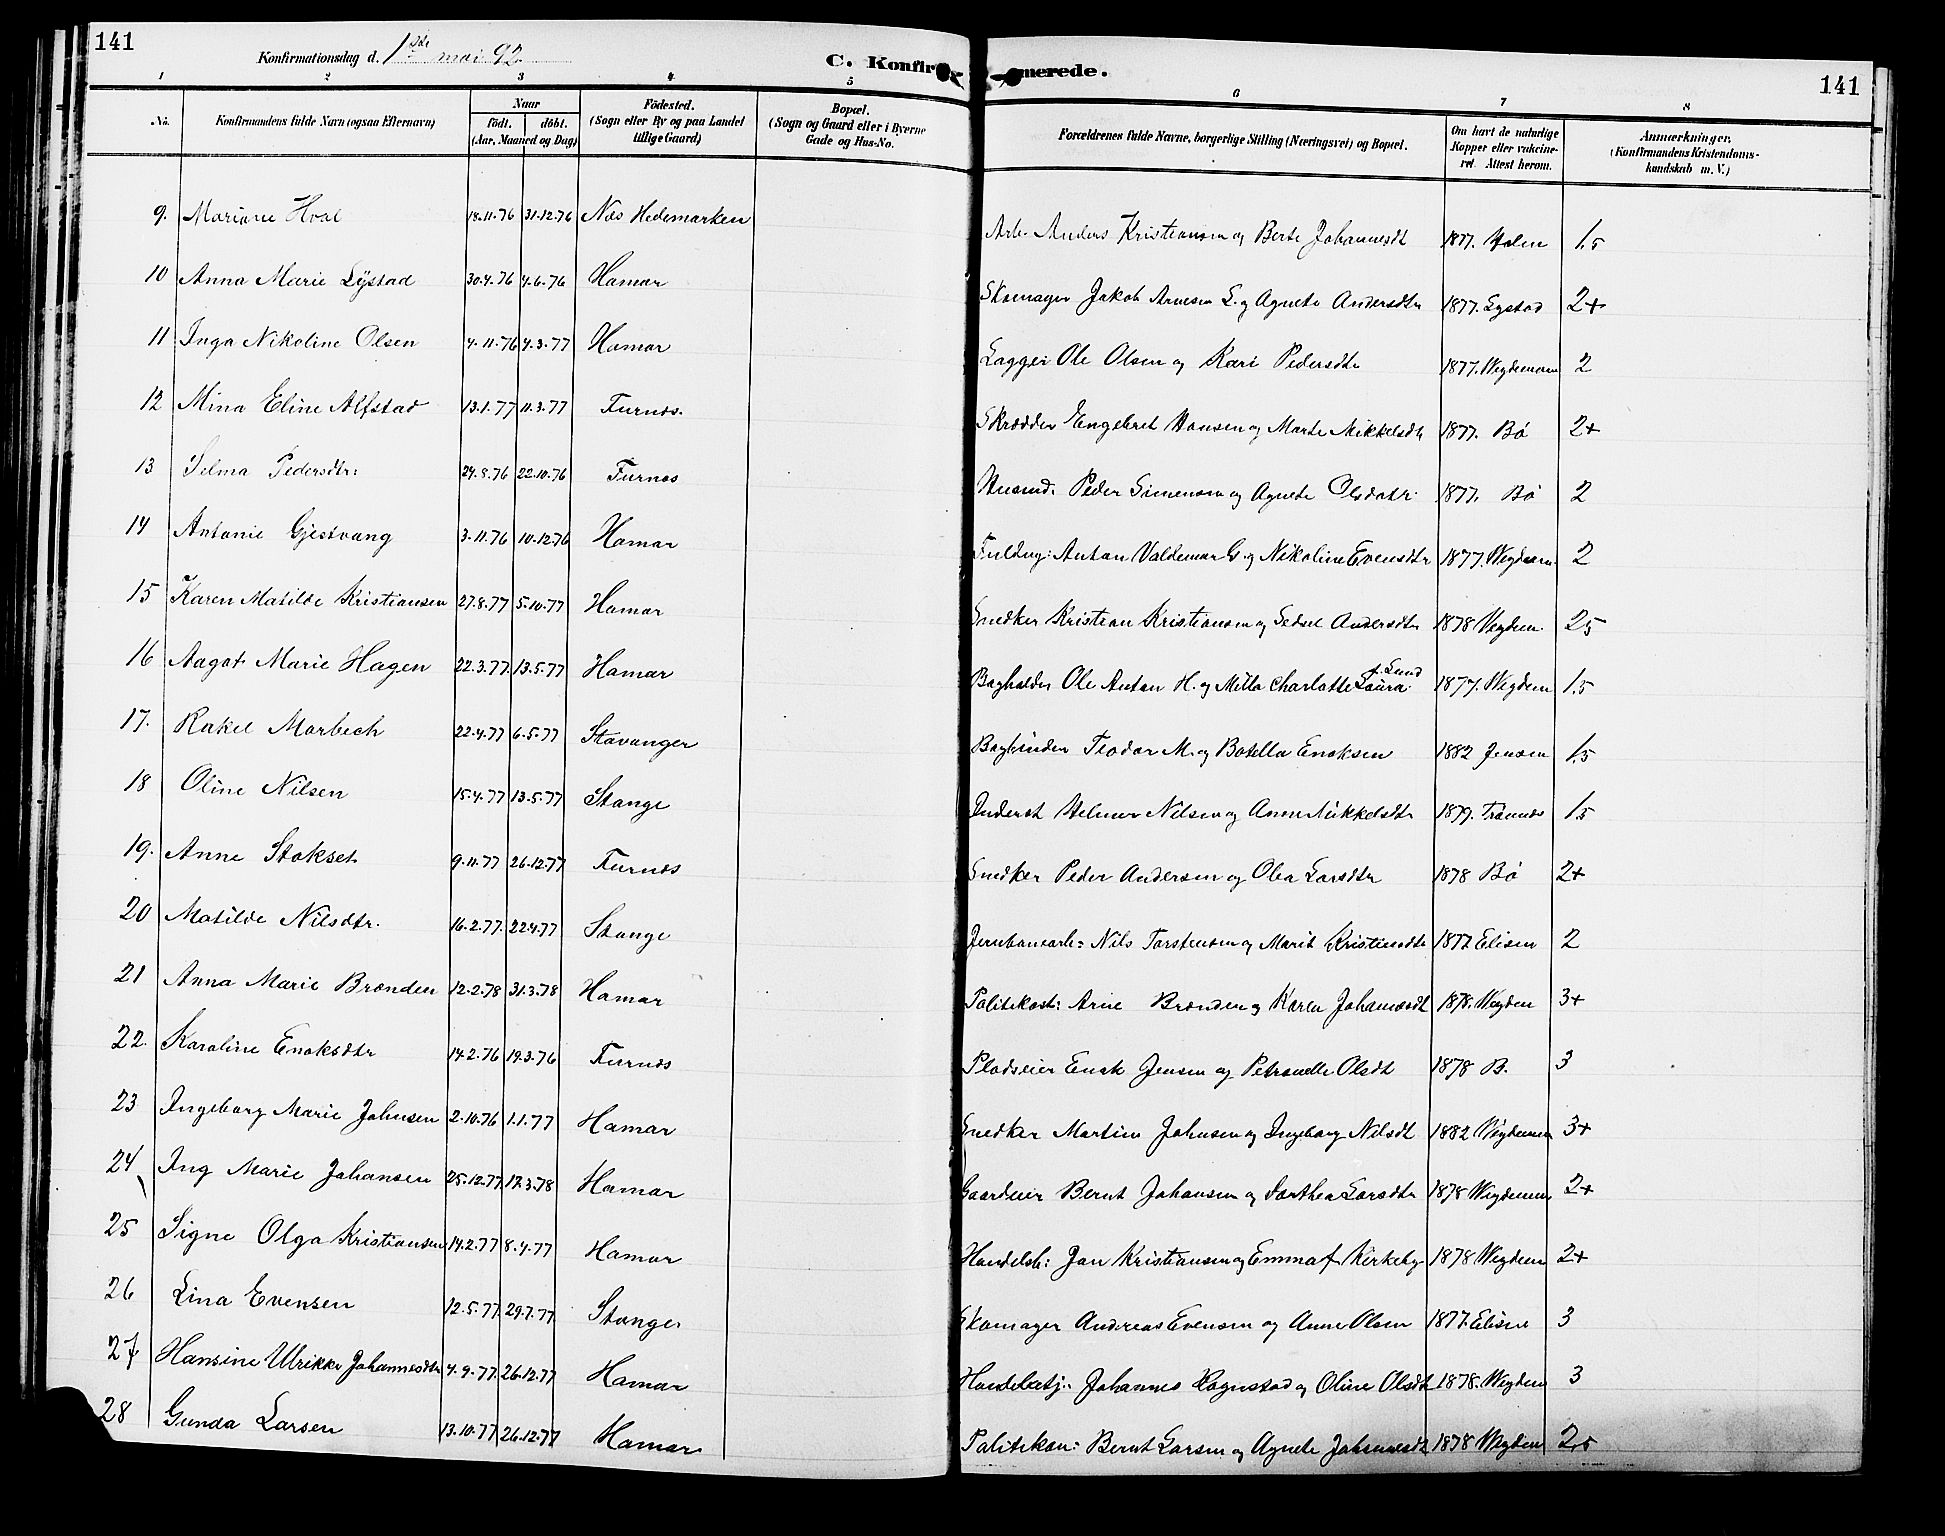 141
Konfirmationsdag d. 1ste mai 92
C. Konfirmerede.
141
1 2 3 4 5 6 7 8
No. Konfirmandens fulde Navn (ogsaa Efternavn) Naar födt. döbt. (Aar, Maaned og Dag) Födested. (Sogn eller By og paa Landet tillige Gaard) Bopæl. (Sogn og Gaard eller i Byerne Gade og Hus-No. Forældrenes fulde Navne, borgerlige Stilling (Næringsvei) og Bopæl. Om havt de naturlige Kopper eller vakcineret. Attest herom. Anmærkninger, (Konfirmandens Kristendomskundskab m. V.)
9. Mariane Hval 18.11.76 31.12.76 Næs Hedemarken Arb. Anders Kristiansen og Berte Johannesdt 1877. Holm 1.5
10 Anna Marie Lÿstad 30.4.76 4.6.76 Hamar Skomager Jakob Arnesen L. og Agnete Andersdtr 1877. Lystad 2+
11 Inga Nikoline Olsen 4.11.76 4.3.77 Hamar Lagger Ole Olsen og Kari Pedersdtr 1877. Wegdemann 2
12 Mina Eline Alfstad 13.1.77 11.3.77 Furnæs. Skrædder Engebret Hansen og Marte Mikkelsdtr 1877. Bö 2+
13 Selma Pedersdtr: 24.8.76 22.10.76 Furnæs Husmd. Peder Simensen og Agnete Olsdatr. 1877. Bö 2
14 Antonie Gjestvang 3.11.76 10.12.76 Hamar Fuldmg: Anton Valdemar G. og Nikoline Evensdtr 1877. Wegdem. 2
15 Karen Matilde Kristiansen 27.8.77 5.10.77 Hamar Snedker Kristian Kristiansen og Sedsel Andersdtr 1878 Wegdem. 25
16 Aagot Marie Hagen 22.3.77. 13.5.77 Hamar Bogholder Ole Anton H. og Milla Charlotte Laura f. Lund 1877. Wegdem 1.5
17. Rakel Marbech 22.4.77 6.5.77 Stavanger Bogbinder Teodor M. og Botella Enoksen 1882 Jensen 1.5
18 Oline Nilsen 15.4.77 13.5.77 Stange Inderst Helmer Nilsen og Anne Mikkelsdtr 1879. 1.5
19. Anne Stokset 9.11.77 26.12.77 Furnæs Snedker Peder Andersen og Olea Larsdtr 1878 Bö 2+
20 Matilde Nilsdtr. 16.2.77. 22.4.77 Stange Jernbanearb: Nils Torstensen og Marit Kristiansdtr 1877 Elisen 2
21 Anna Marie Brænden 12.2.78 31.3.78 Hamar Politikost: Arne Brænden og Karen Johannesdt 1878. Wegdem 3+
22. Karoline Enoksdtr 14.2.76 19.3.76 Furnæs Pladseier Enok Jensen og Petronelle Olsdt 1878 B. 3
23 Ingeborg Marie Johnsen 2.10.76 1.1.77 Hamar Snedker Martin Johnsen og Ingeborg Nilsdt 1882 Wegdemann 3+
24 Ing Marie Johansen 25.12.77. 17.3.78 Hamar Gaardeier Bernt Johansen og Dorthea Larsdtr 1878 Wegdemann 2+
25 Signe Olga Kristiansen 14.2.77 8.4.77 Hamar Handelsb: Jan Kristiansen og Emma f. Kirkeby 1878 Wegdem 2+
26 Lina Evensen 12.5.77. 29.7.77 Stange. Skomager Andreas Evensen og Anne Olsen 1877. Elisen 3
27 Hansine Ulrikke Johannesdtr 4.9.77. 26.12.77 Hamar Handelsbetj. Johannes Rognstad og Oline Olsdt 1878. Wegdem 3
28 Gunda Larsen 13.10.77 26.12.77 Hamar Politikon: Bernt Larsen og Agnete Johannesdt 1878 Wegdem 2.5